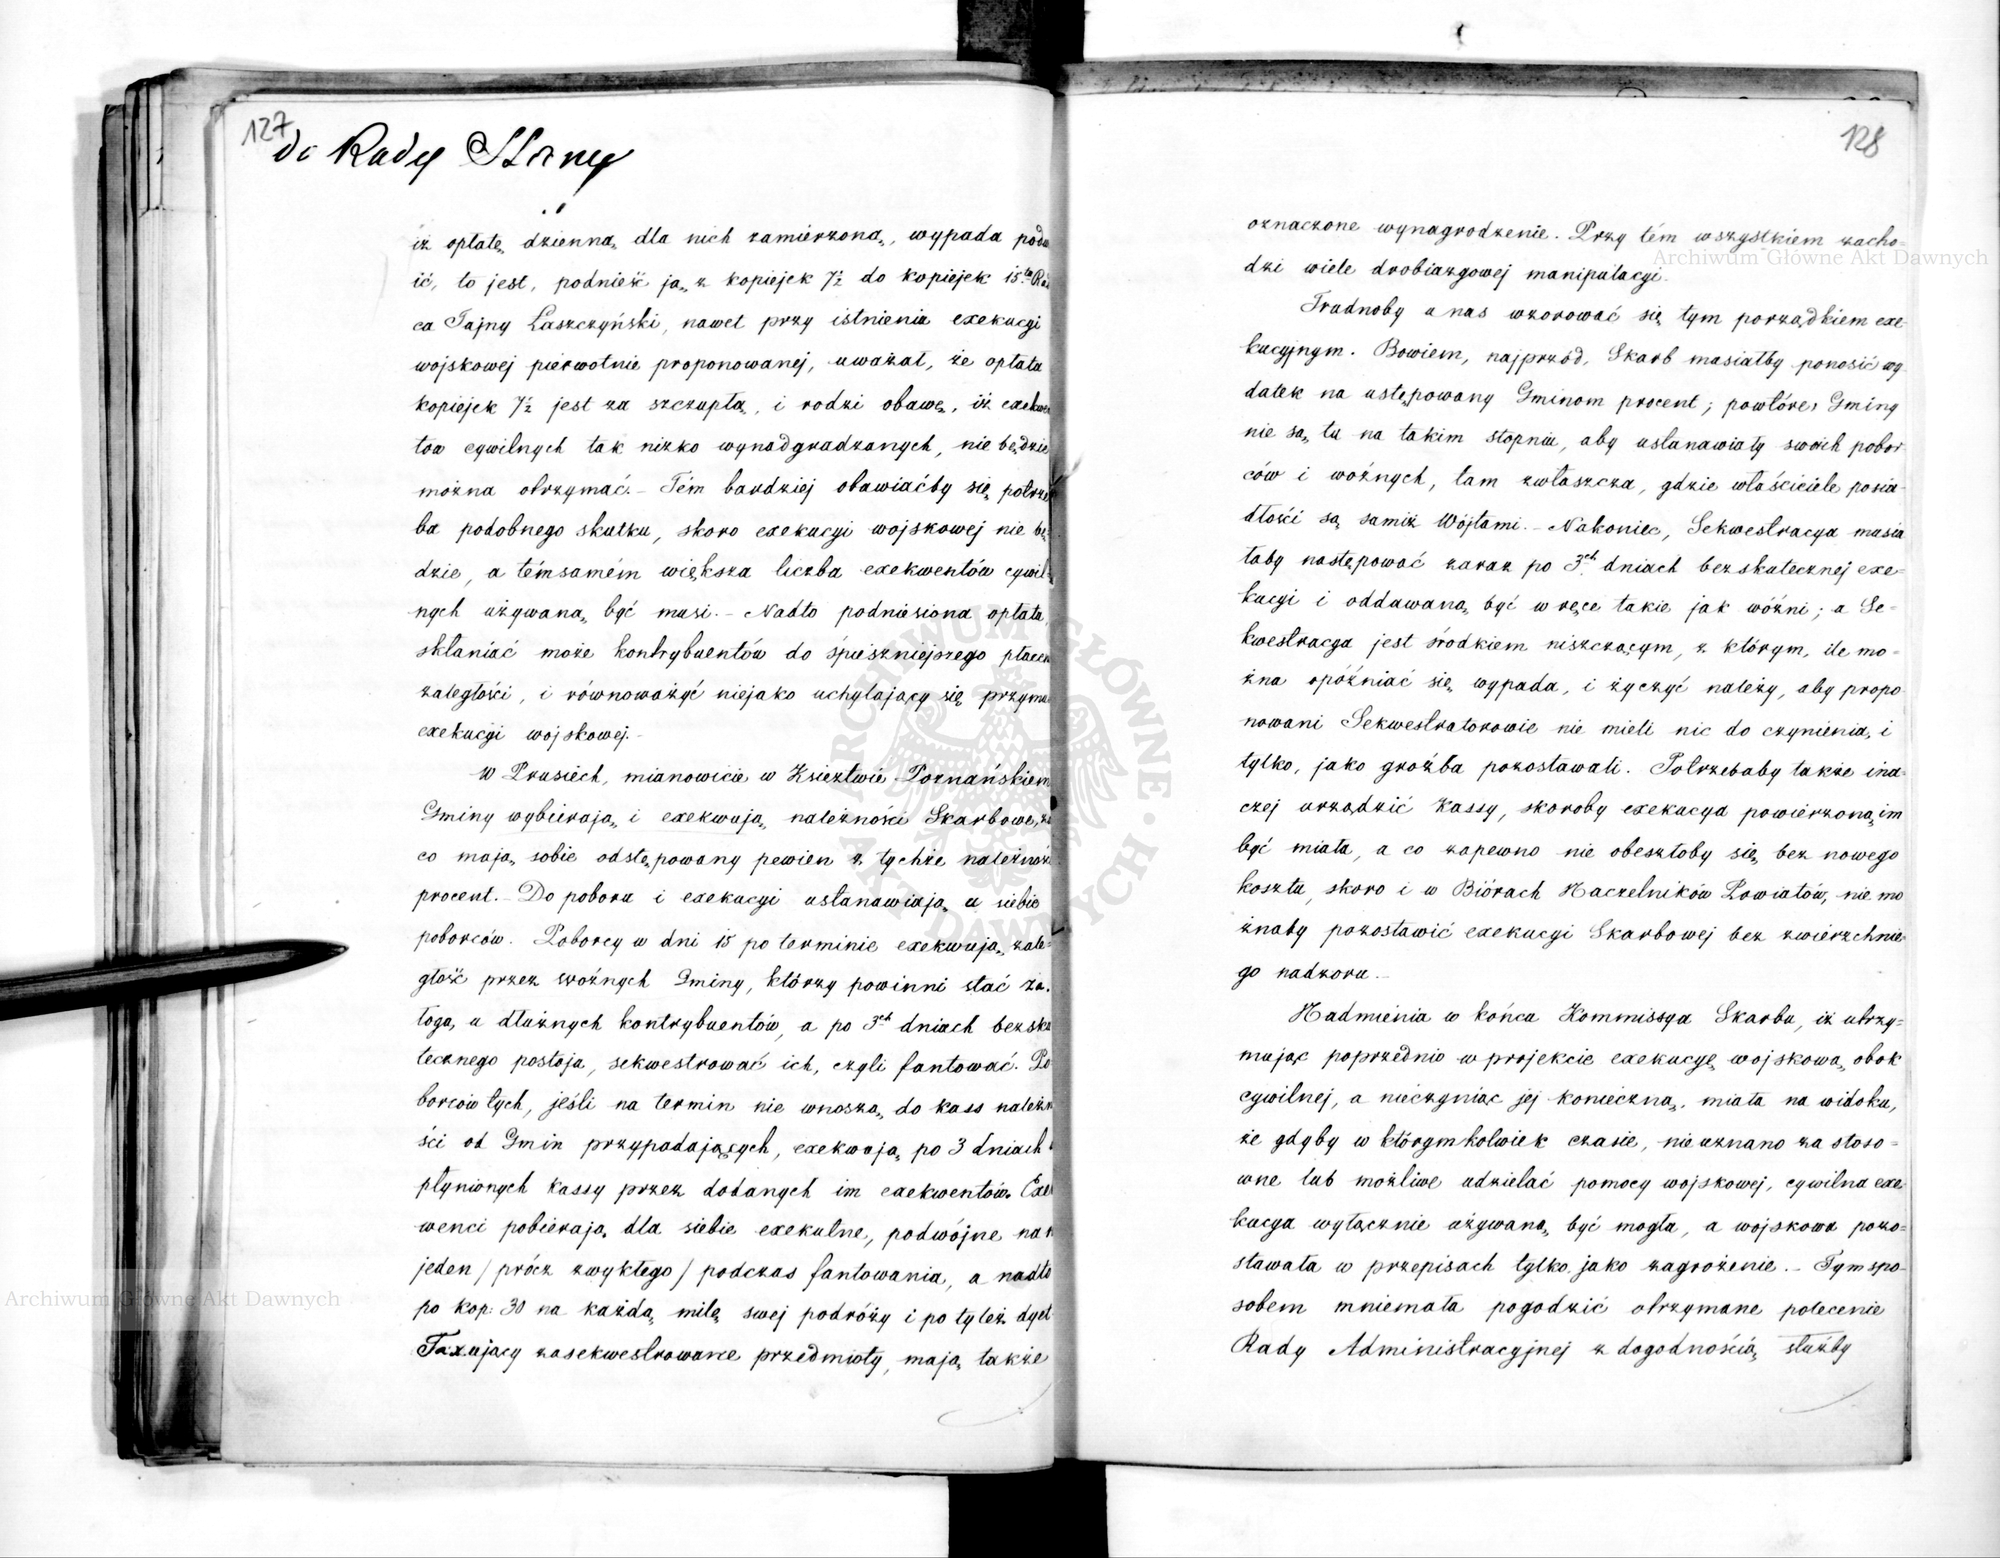 127
do Rady Stanu
iż opłatę dzienną dla nich zamierzoną, wypada podw
ić, to jest, podnieść ją z kopiejek 7½ do kopiejek 15.tu Rad
ca Tajny Łaszczyński, nawet przy istnieniu exekucyi
wojskowej pierwotnie proponowanej, uważał, że opłata
kopiejek 7½ jest za szczupłą, i rodzi obawę, iż exekwen
tów cywilnych tak nizko wynadgradzanych, nie będzie
można otrzymać. – Tém bardziej obawiaćby się potrze
ba podobnego skutku, skoro exekucyi wojskowej nie bę
dzie, a témsamém większa liczba exekwentów cywil-
nych używaną być musi. – Nadto podniesiona opłata
skłaniać może kontrybuentów do śpieszniejszego płacen
zaległości, i równoważyć niejako uchylający się przymu
exekucyi wojskowej. –
W Prusiech, mianowicie w Księztwie Poznańskiem
Gminy wybierają i exekwują należności Skarbowe, za
co mają sobie odstępowany pewien z tychże należnoś
procent. – Do poboru i exekucyi ustanawiają u siebie
poborców. Poborcy w dni 15 po terminie exekwują zale=
głość przez woźnych Gminy, którzy powinni stać za=
łogą u dłużnych kontrybuentów, a po 3ch dniach bezsku
tecznego postoja, sekwestrować ich, czyli fantować. Po
borców tych, jeśli na termin nie wnoszą do kass należn
ści od Gmin przypadających, exekwują po 3 dniach
płynionych kassy przez dodanych im exekwentów. Exe
wenci pobierają dla siebie exekutne, podwójne na
jeden / prócz zwykłego / podczas fantowania, a nadto
po kop: 30 na każdą milę swej podróży i po tyleż dyet
Taxujący zasekwestrowane przedmioty, mają także
128
oznaczone wynagrodzenie. Przy tém wszystkiem zacho=
dzi wiele drobiazgowej manipulacyi.
Trudnoby u nas wzorować się tym porządkiem exe-
kucyjnym. Bowiem, najprzód, Skarb musiałby ponosić wy-
datek na ustępowany Gminom procent; powtóre, Gminy
nie są tu na takim stopniu, aby ustanawiały swoich pobor-
ców i woźnych, tam zwłaszcza, gdzie właściciele posia-
dłości są samiż Wójtami. – Nakoniec, Sekwestracya musia
łaby następować zaraz po 3ch dniach bezskutecznej exe-
kucyi i oddawaną być w ręce takie jak woźni; a Se=
kwestracya jest środkiem niszczącym, z którym, ile mo=
żna opóźniać się wypada, i życzyć należy, aby propo-
nowani Sekwestratorowie nie mieli nic do czynienia, i
tylko, jako groźba pozostawali. Potrzebaby także ina-
czej urządzić Kassy, skoroby exekucya powierzoną im
być miała, a co zapewno nie obeszłoby się bez nowego
kosztu, skoro i w Biórach Naczelników Powiatów, nie mo
żnaby pozostawić exekucyi Skarbowej bez zwierzchnie-
go nadzoru. –
Nadmienia w końcu Kommissya Skarbu, iż utrzy=
mując poprzednio w projekcie exekucyę wojskową obok
cywilnej, a nieczyniąc jej konieczną, miała na widoku,
że gdyby w którymkolwiek czasie, nie uznano za stoso=
wne lub możliwe udzielać pomocy wojskowej, cywilna exe-
kucya wyłącznie używaną być mogła, a wojskowa pozo=
stawała w przepisach tylko, jako zagrożenie. – Tym spo-
sobem mniemała pogodzić otrzymane polecenie
Rady Administracyjnej z dogodnością służby
Archiwum Główne Akt Dawnych
Archiwum Główne Akt Dawnych
ARCHIWUM GŁÓWNE AKT DAWNYCH